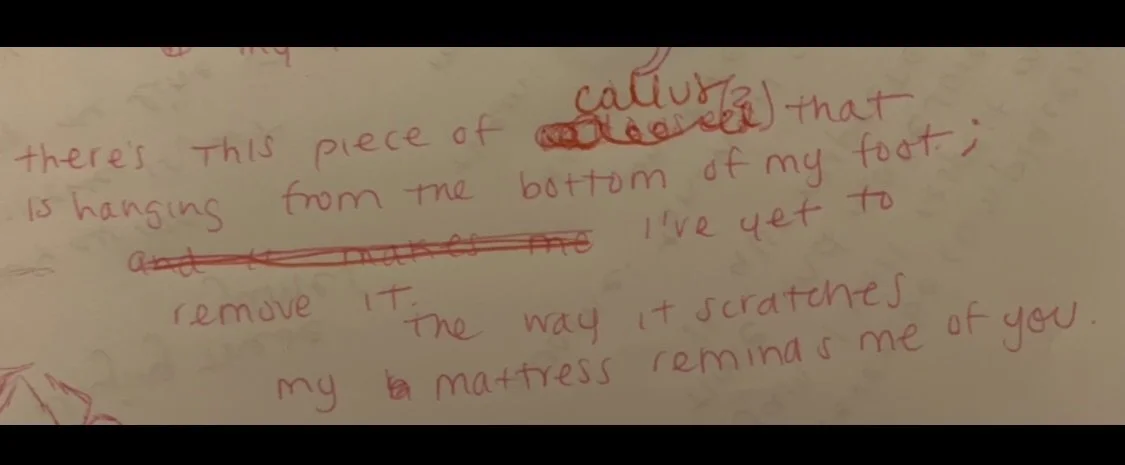 my
callus(?)
there's this piece of that
is hanging from the bottom of my foot;
and it makes me I've yet to
remove it.
the way it scratches
my mattress reminds me of you.